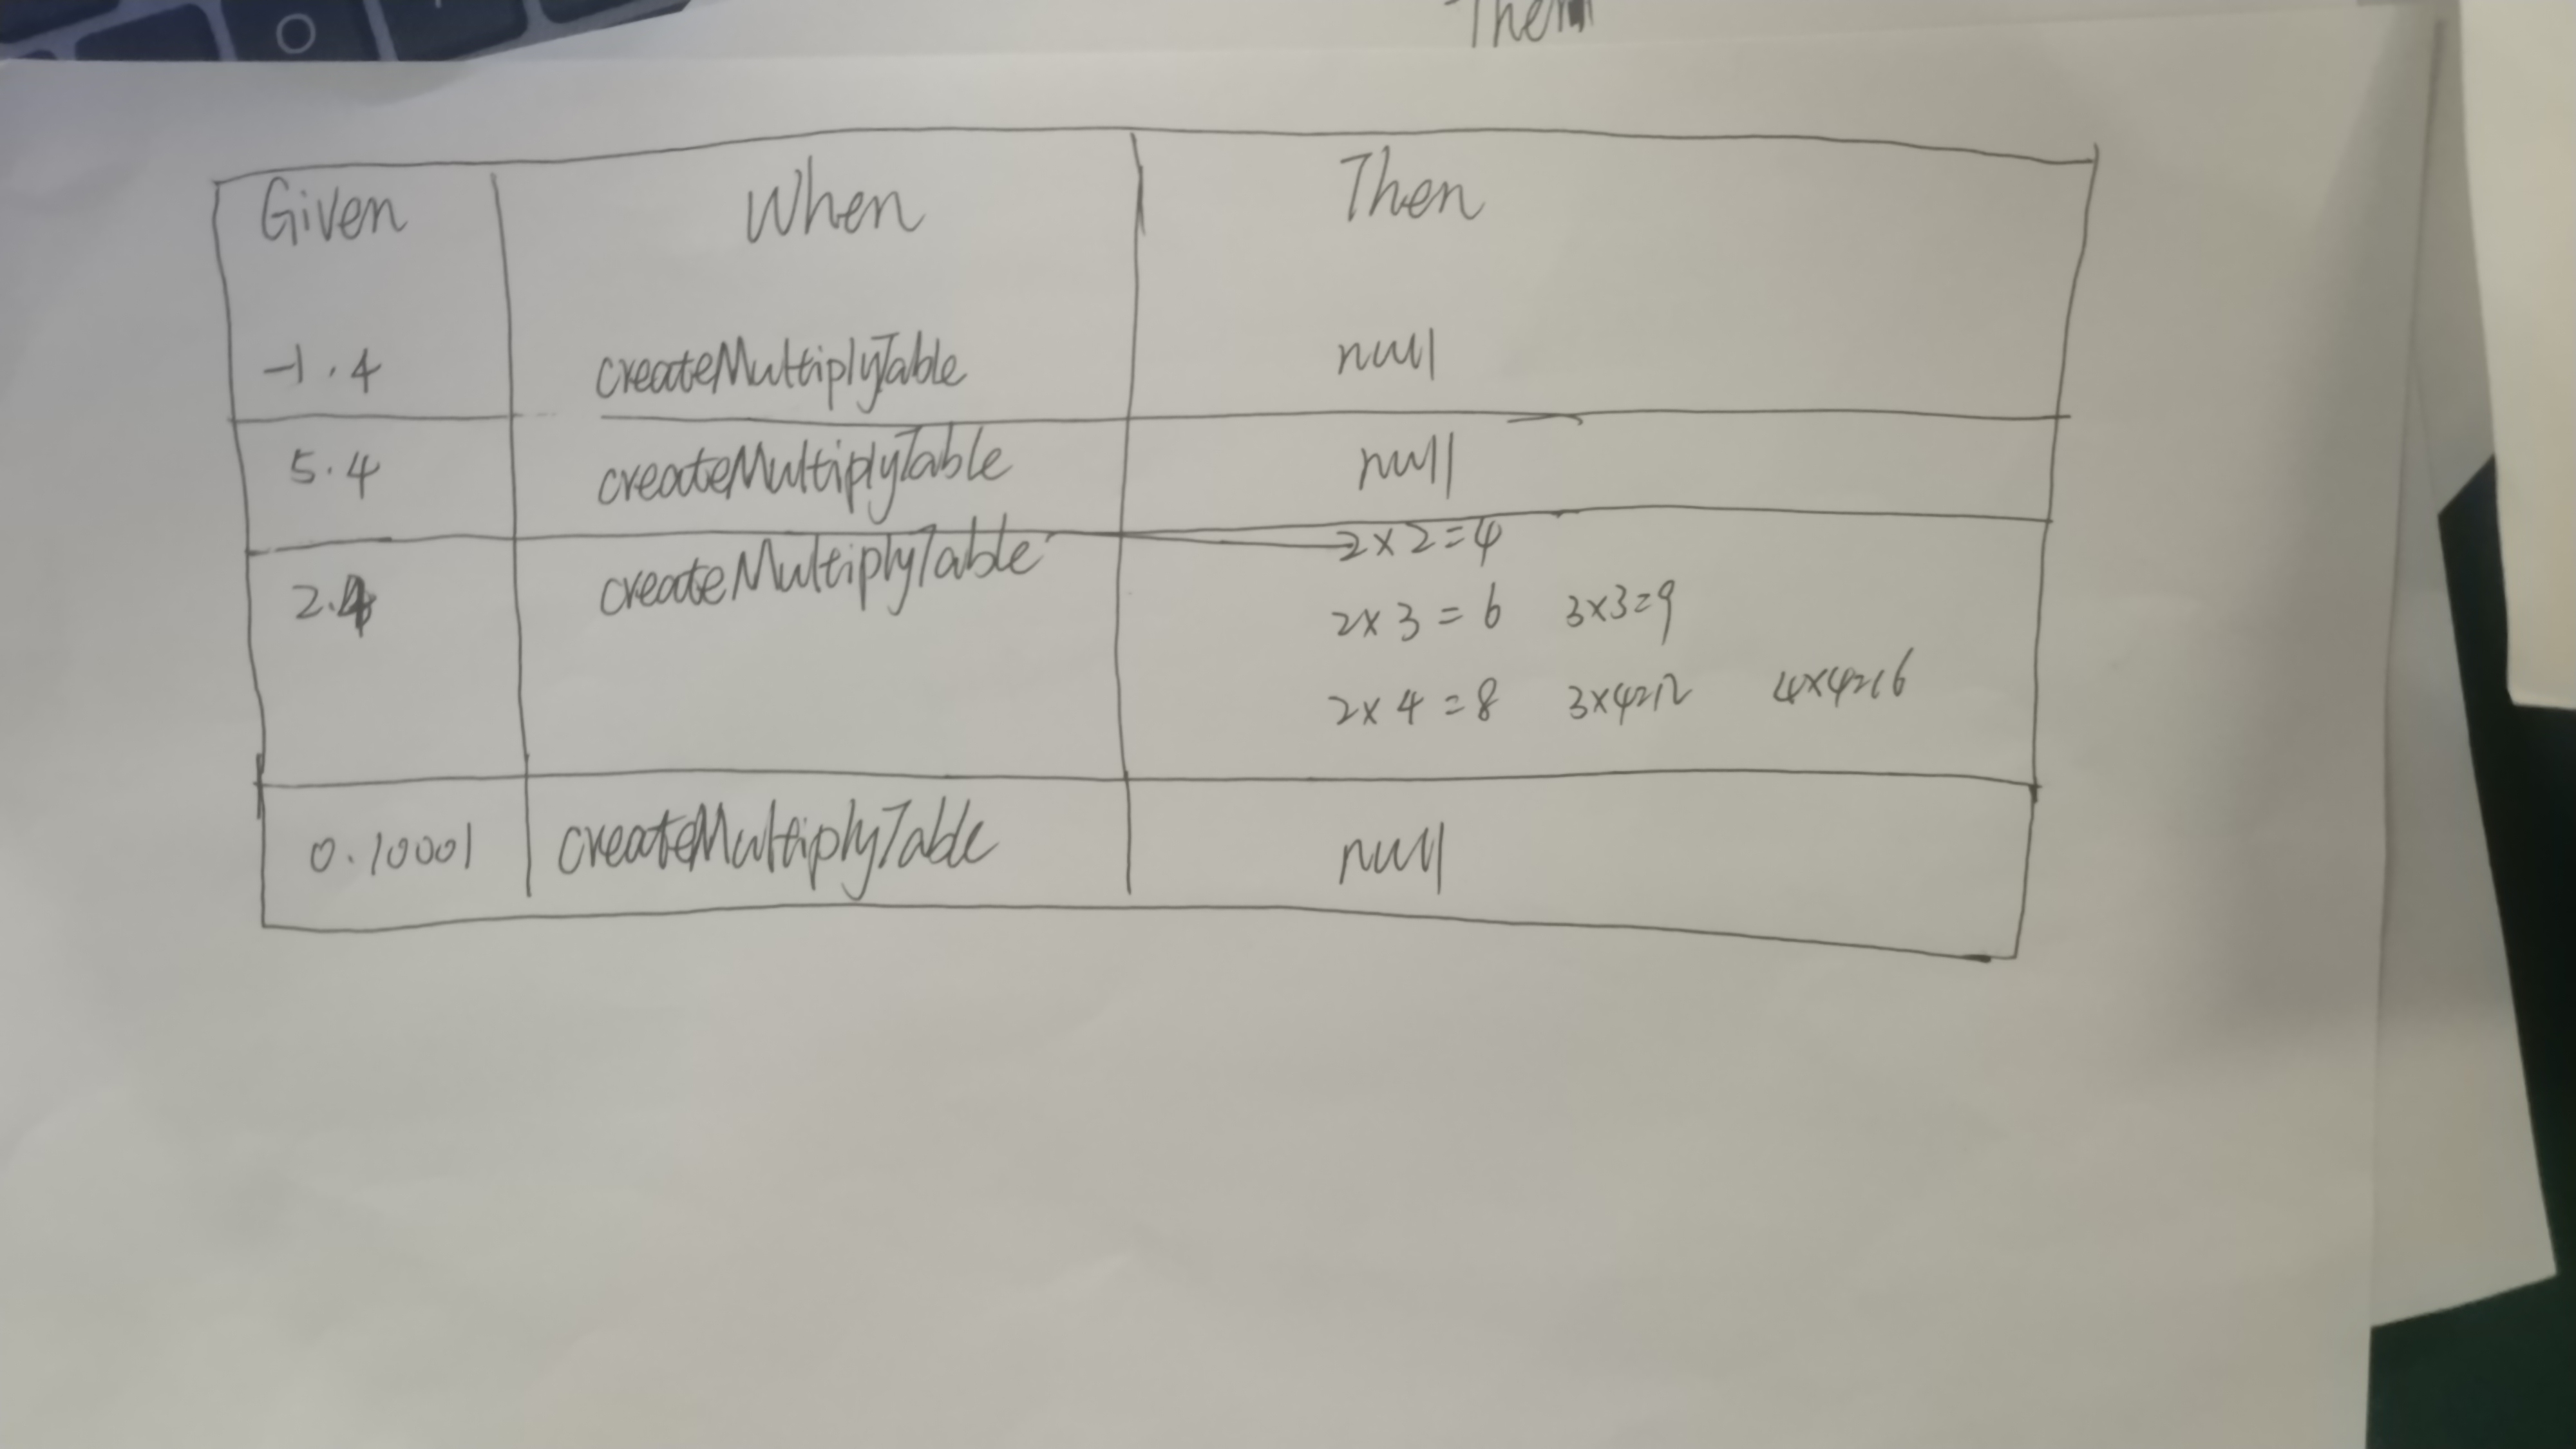 Given When Then
-1.4 createMultiplyTable null
5.4 createMultiplyTable null
2.4 createMultiplyTable 2x2=4
2x3=6 3x3=9
2x4=8 3x4=12 4x4=16
0.1001 createMultiplyTable null
Then
O